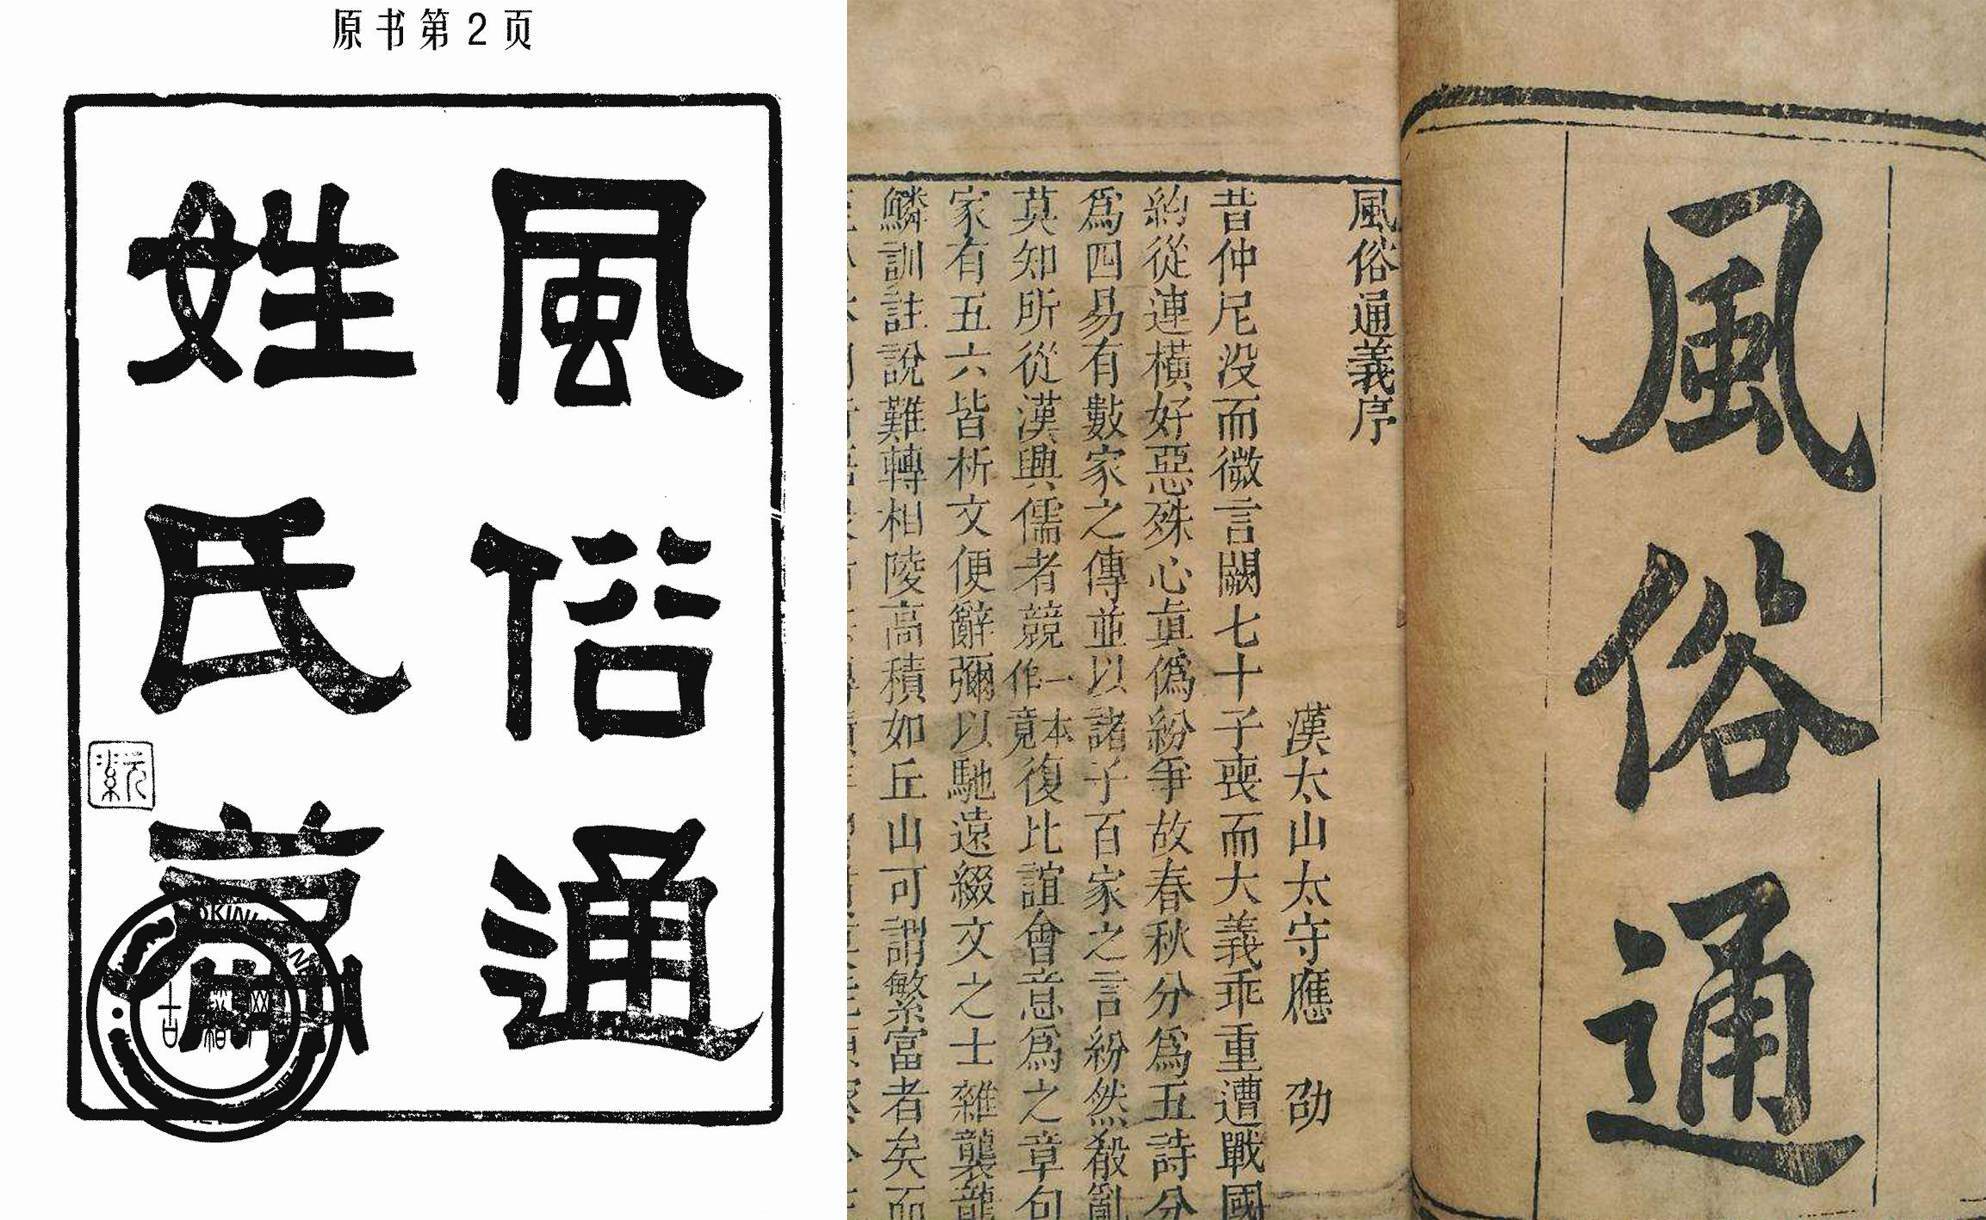 原书第2页
風俗通
姓氏篇
風俗通
風俗通義序
漢太山太守應劭
昔仲尼没而微言闕七十子喪而大義乖重遭戰國
約從連橫好惡殊心眞偽紛爭故春秋分爲五詩分
爲四易有數家之傳並以諸子百家之言紛然殽亂
莫知所從漢興儒者競一本作竟復比誼會意爲之章句
家有五六皆析文便辭彌以馳遠綴文之士雜襲龍
鱗訓註說難轉相陵高積如丘山可謂繁富者矣而